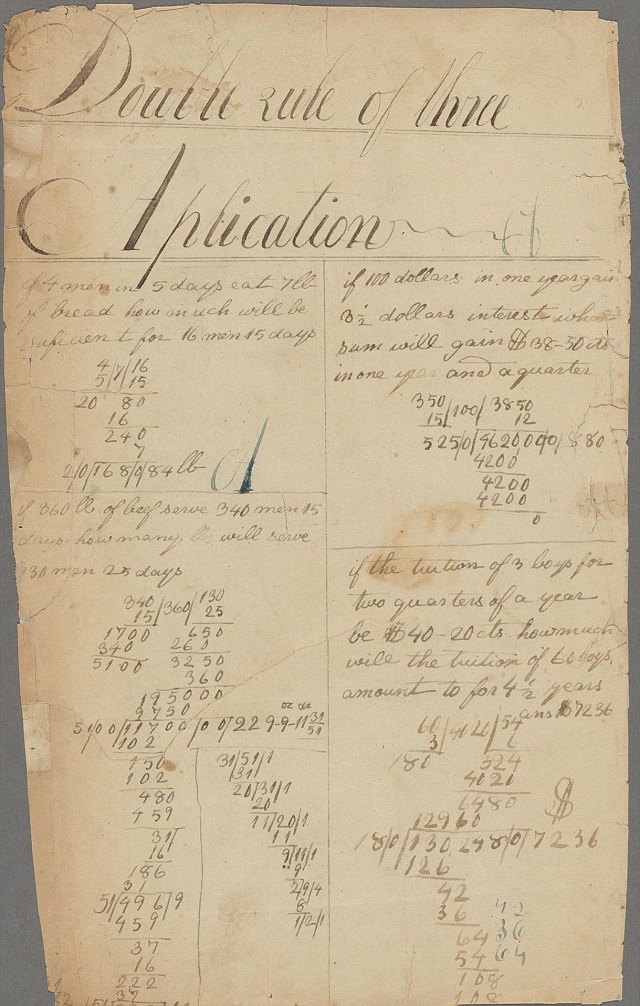 Double rule of three
Aplication
if 4 men in 5 days eat 7 lb
of bread how much will be
suficient for 16 men 15 days
4/7/16
5/ /15
20 80
16
240
7
20/168/0/84 lb
if 360 lb of beef serve 340 men 15
days how many lb will serve
130 men 25 days
340/360/130
15/ /25
1700 650
340 260
5100 3250
360
195000
9750
oz dr
5100/11700/00/229-9-11 31/51
102
150
102
480
459
31/
16
186
31
51/496/9
459
37
16
222
37
31/51/1
31
20/31/1
20
11/20/1
11
9/11/1
9
2/9/4
8
1/2/1
if 100 dollars in one year gain
3 1/2 dollars interest what
sum will gain $38-50 cts
in one year and a quarter
350/100/3850
15/ 12
5250/4620000/880
4200
4200
4200
0
if the tuition of 3 boys for
two quarters of a year
be $40-20 cts how much
will the tuition of 60 boys
amount to for 4 1/2 years
ans $7236
60/4020/54
3/ 6
180 324
4020
6480
12960 $
180/130248/0/7236
126
42
36 42
64 36
54 64
108
108